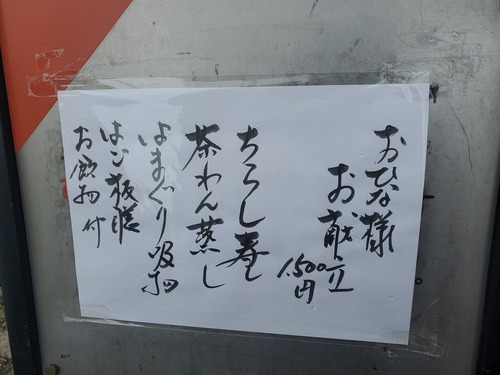 おひな様
お献立
1,500円
ちらし寿し
茶わん蒸し
はまぐり吸物
はご板膳
お飲物付